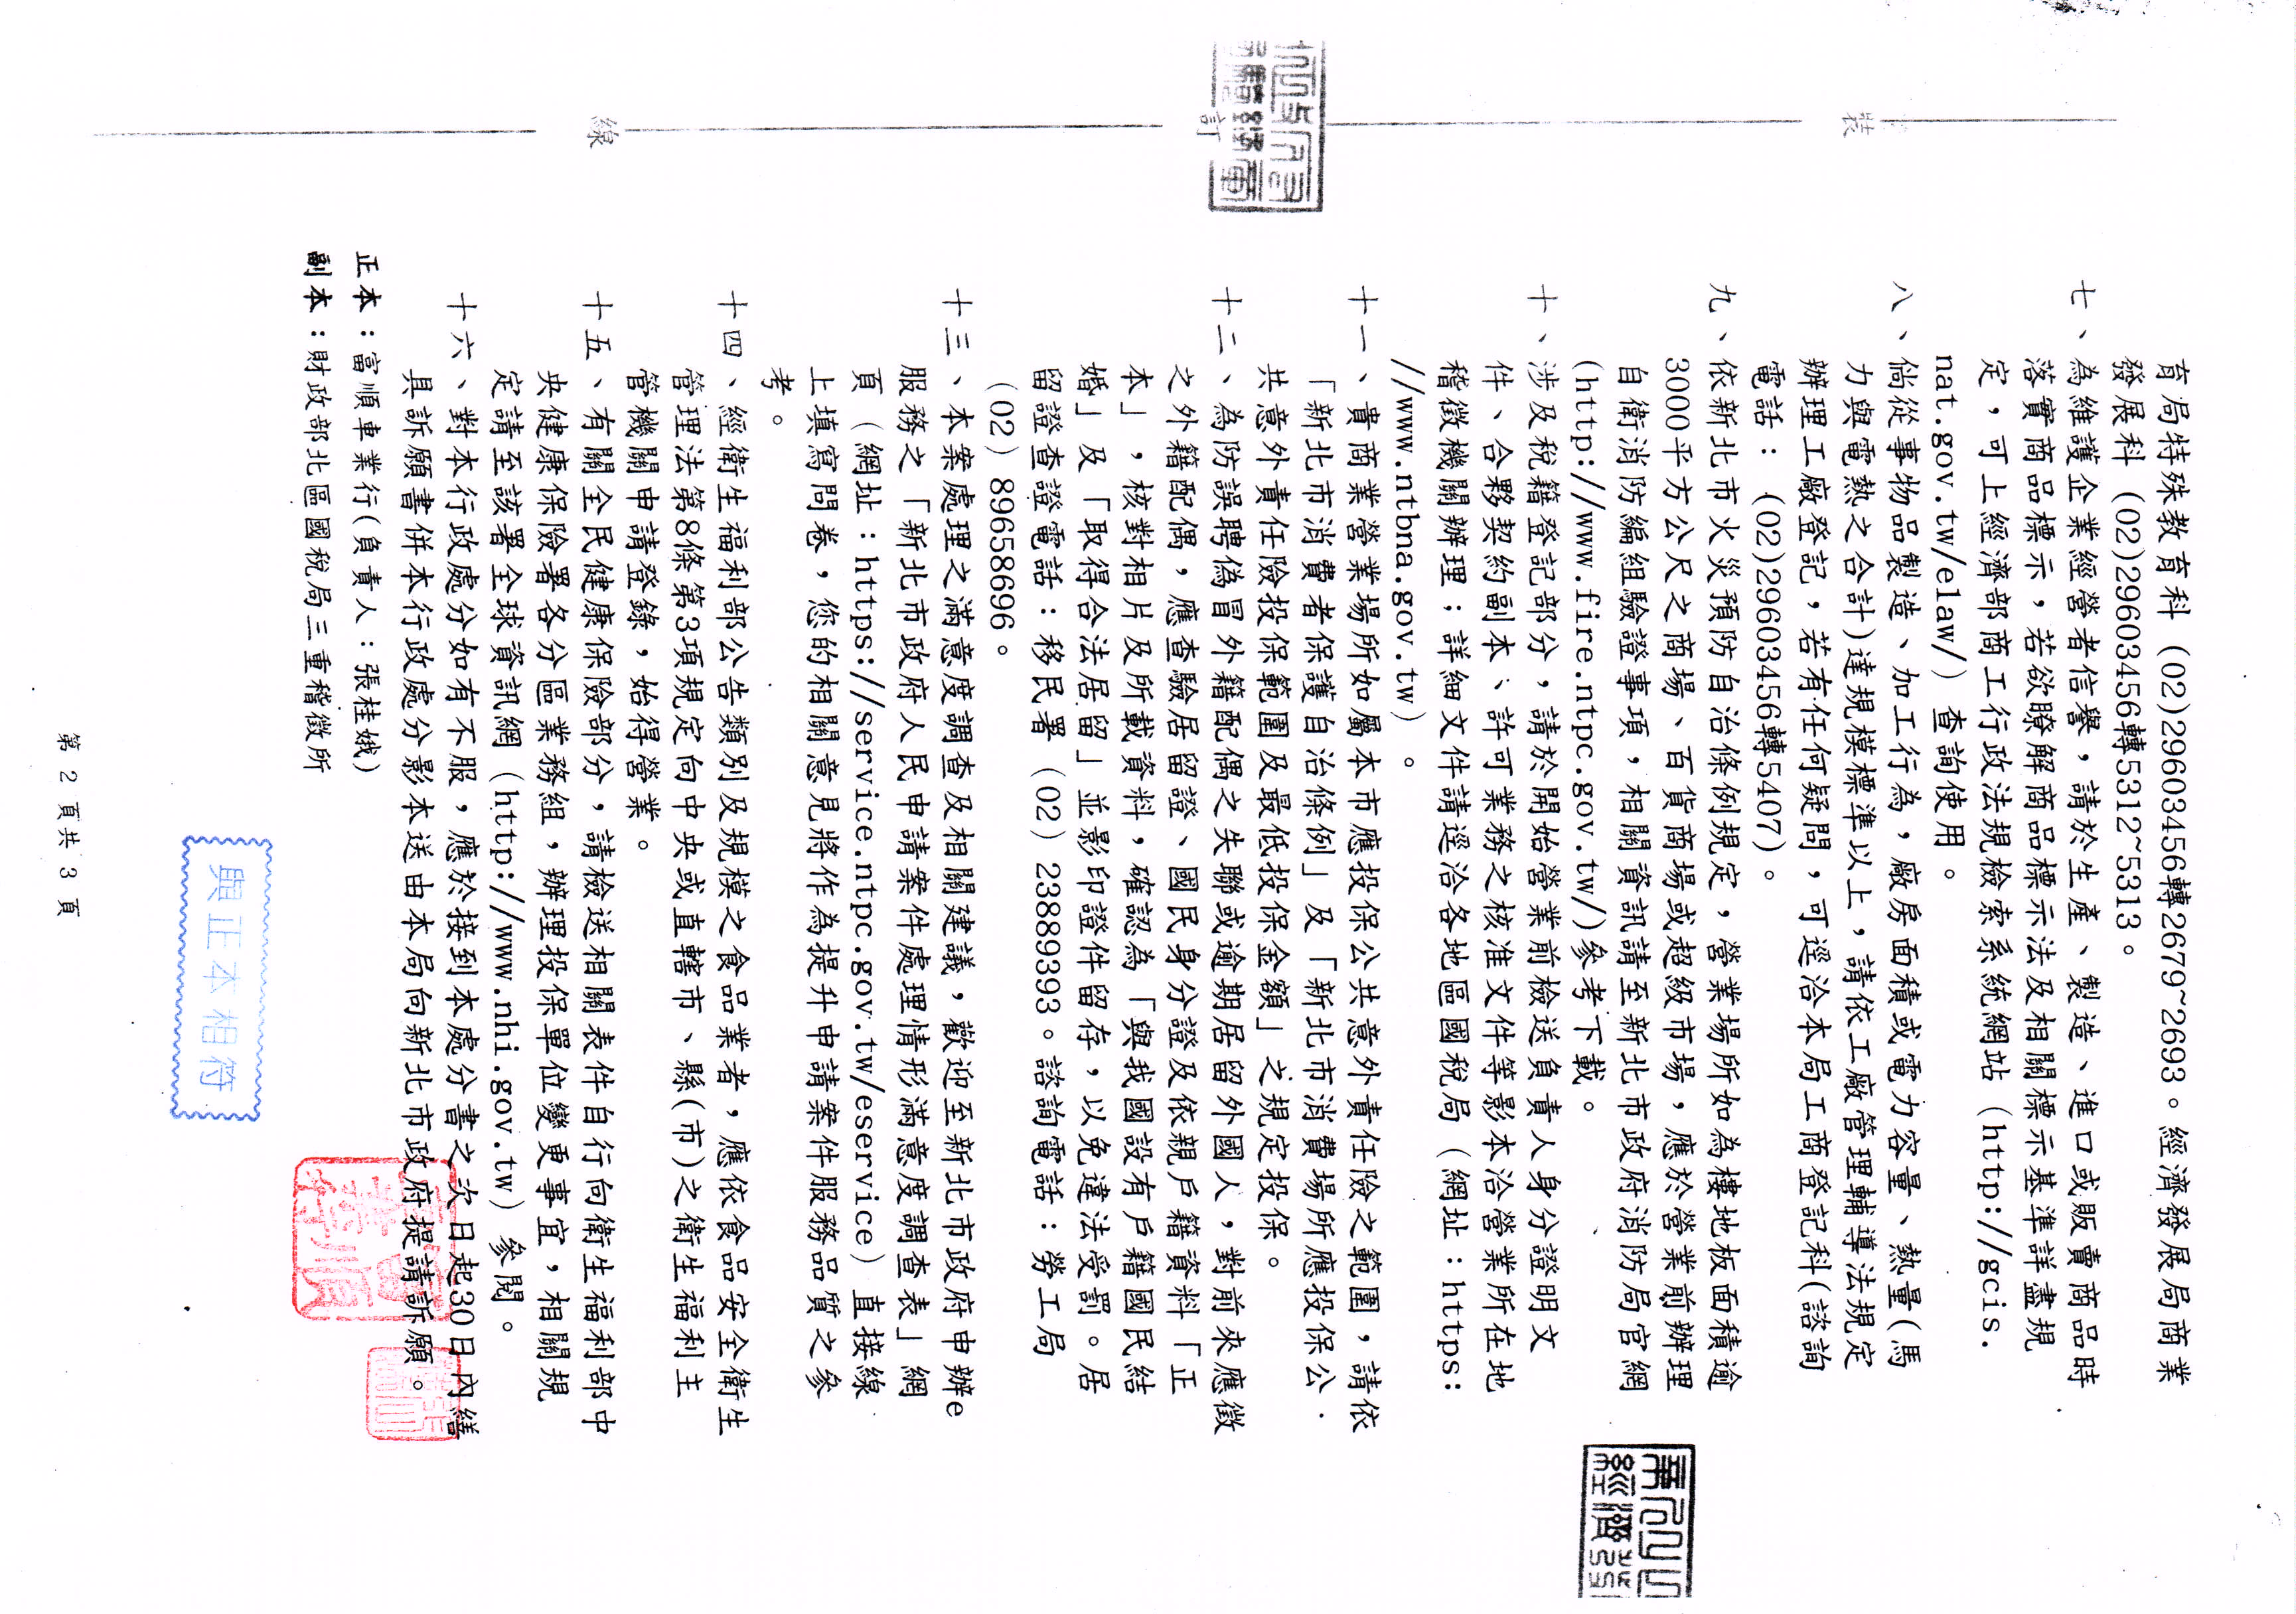 育局特殊教育科（02)29603456轉2679~2693。經濟發展局商業
發展科（02)29603456轉5312~5313。
七、為維護企業經營者信譽，請於生產、製造、進口或販賣商品時
落實商品標示，若欲瞭解商品標示法及相關標示基準詳盡規
定，可上經濟部商工行政法規檢索系統網站（http://gcis.
nat.gov.tw/elaw/）查詢使用。
八、倘從事物品製造、加工行為，廠房面積或電力容量、熱量(馬
力與電熱之合計)達規模標準以上，請依工廠管理輔導法規定
辦理工廠登記，若有任何疑問，可逕洽本局工商登記科(諮詢
電話：（02)29603456轉5407)。
九、依新北市火災預防自治條例規定，營業場所如為樓地板面積逾
3000平方公尺之商場、百貨商場或超級市場，應於營業前辦理
自衛消防編組驗證事項，相關資訊請至新北市政府消防局官網
(http://www.fire.ntpc.gov.tw/)參考下載。
十、涉及稅籍登記部分，請於開始營業前檢送負責人身分證明文
件、合夥契約副本、許可業務之核准文件等影本洽營業所在地
稽徵機關辦理；詳細文件請逕洽各地區國稅局（網址：https:
//www.ntbna.gov.tw）。
十一、貴商業營業場所如屬本市應投保公共意外責任險之範圍，請依
「新北市消費者保護自治條例」及「新北市消費場所應投保公
共意外責任險投保範圍及最低投保金額」之規定投保。
十二、為防誤聘偽冒外籍配偶之失聯或逾期居留外國人，對前來應徵
之外籍配偶，應查驗居留證、國民身分證及依親戶籍資料「正
本」，核對相片及所載資料，確認為「與我國設有戶籍國民結
婚」及「取得合法居留」並影印證件留存，以免違法受罰。居
留證查證電話：移民署（02）23889393。諮詢電話：勞工局
（02）89658696。
十三、本案處理之滿意度調查及相關建議，歡迎至新北市政府申辦e
服務之「新北市政府人民申請案件處理情形滿意度調查表」網
頁（網址：https://service.ntpc.gov.tw/eservice）直接線
上填寫問卷，您的相關意見將作為提升申請案件服務品質之參
考。
十四、經衛生福利部公告類別及規模之食品業者，應依食品安全衛生
管理法第8條第3項規定向中央或直轄市、縣(市)之衛生福利主
管機關申請登錄，始得營業。
十五、有關全民健康保險部分，請檢送相關表件自行向衛生福利部中
央健康保險署各分區業務組，辦理投保單位變更事宜，相關規
定請至該署全球資訊網（http://www.nhi.gov.tw）參閱。
十六、對本行政處分如有不服，應於接到本處分書之次日起30日內繕
具訴願書併本行政處分影本送由本局向新北市政府提請訴願。
正本：富順車業行(負責人：張桂娥)
副本：財政部北區國稅局三重稽徵所
與正本相符
第 2 頁共 3 頁
裝
訂
線